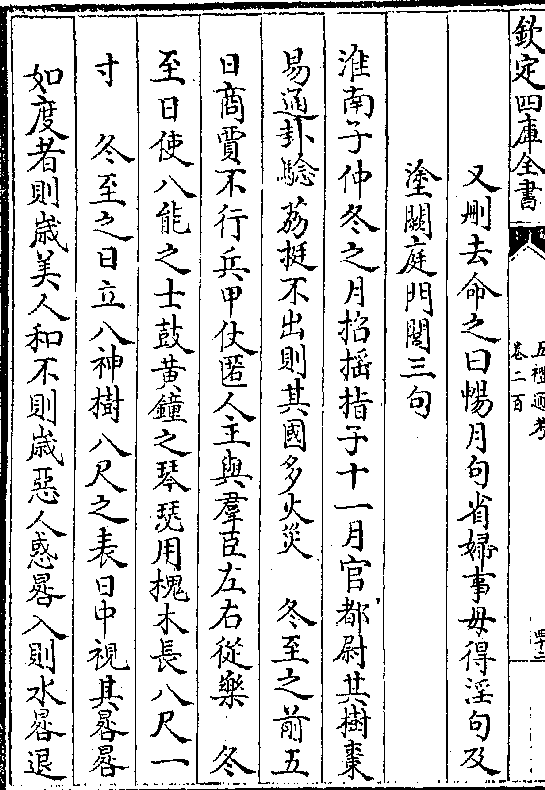 欽定四庫全書
五禮通考
卷二百
四十二
又刪去命之曰暢月句省婦事毋得淫句及
塗闕庭門閭三句
淮南子仲冬之月招搖指子十一月官都尉其樹棗
易通卦驗荔挺不出則其國多火災　冬至之前五
日商賈不行兵甲伏匿人主與羣臣左右從樂　冬
至日使八能之士鼓黃鐘之琴瑟用槐木長八尺一
寸　冬至之日立八神樹八尺之表日中視其晷晷
如度者則嵗美人和不則嵗惡人惑晷入則水晷退